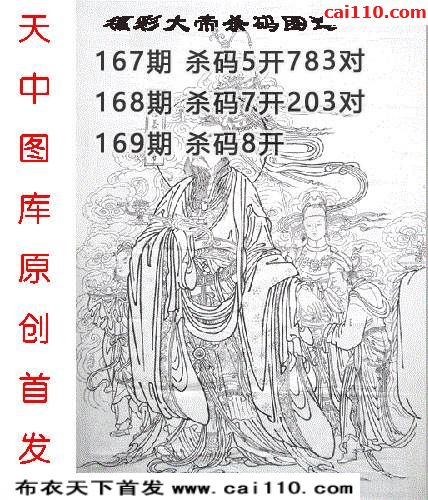 cai110.com
福彩大帝杀码图
167期 杀码5开783对
168期 杀码7开203对
169期 杀码8开
天中图库原创首发
布衣天下首发 www.cai110.com